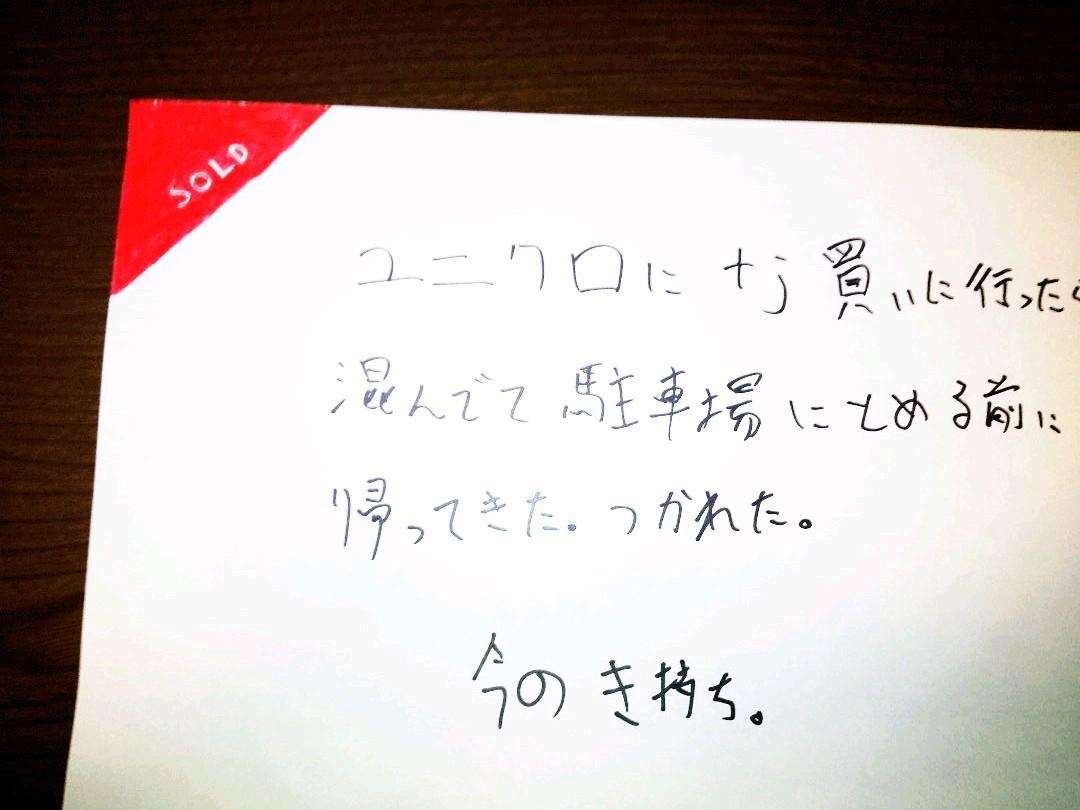 SOLD
ユニクロに +j 買いに行ったら
混んでて駐車場にとめる前に
帰ってきた。つかれた。
今のき持ち。